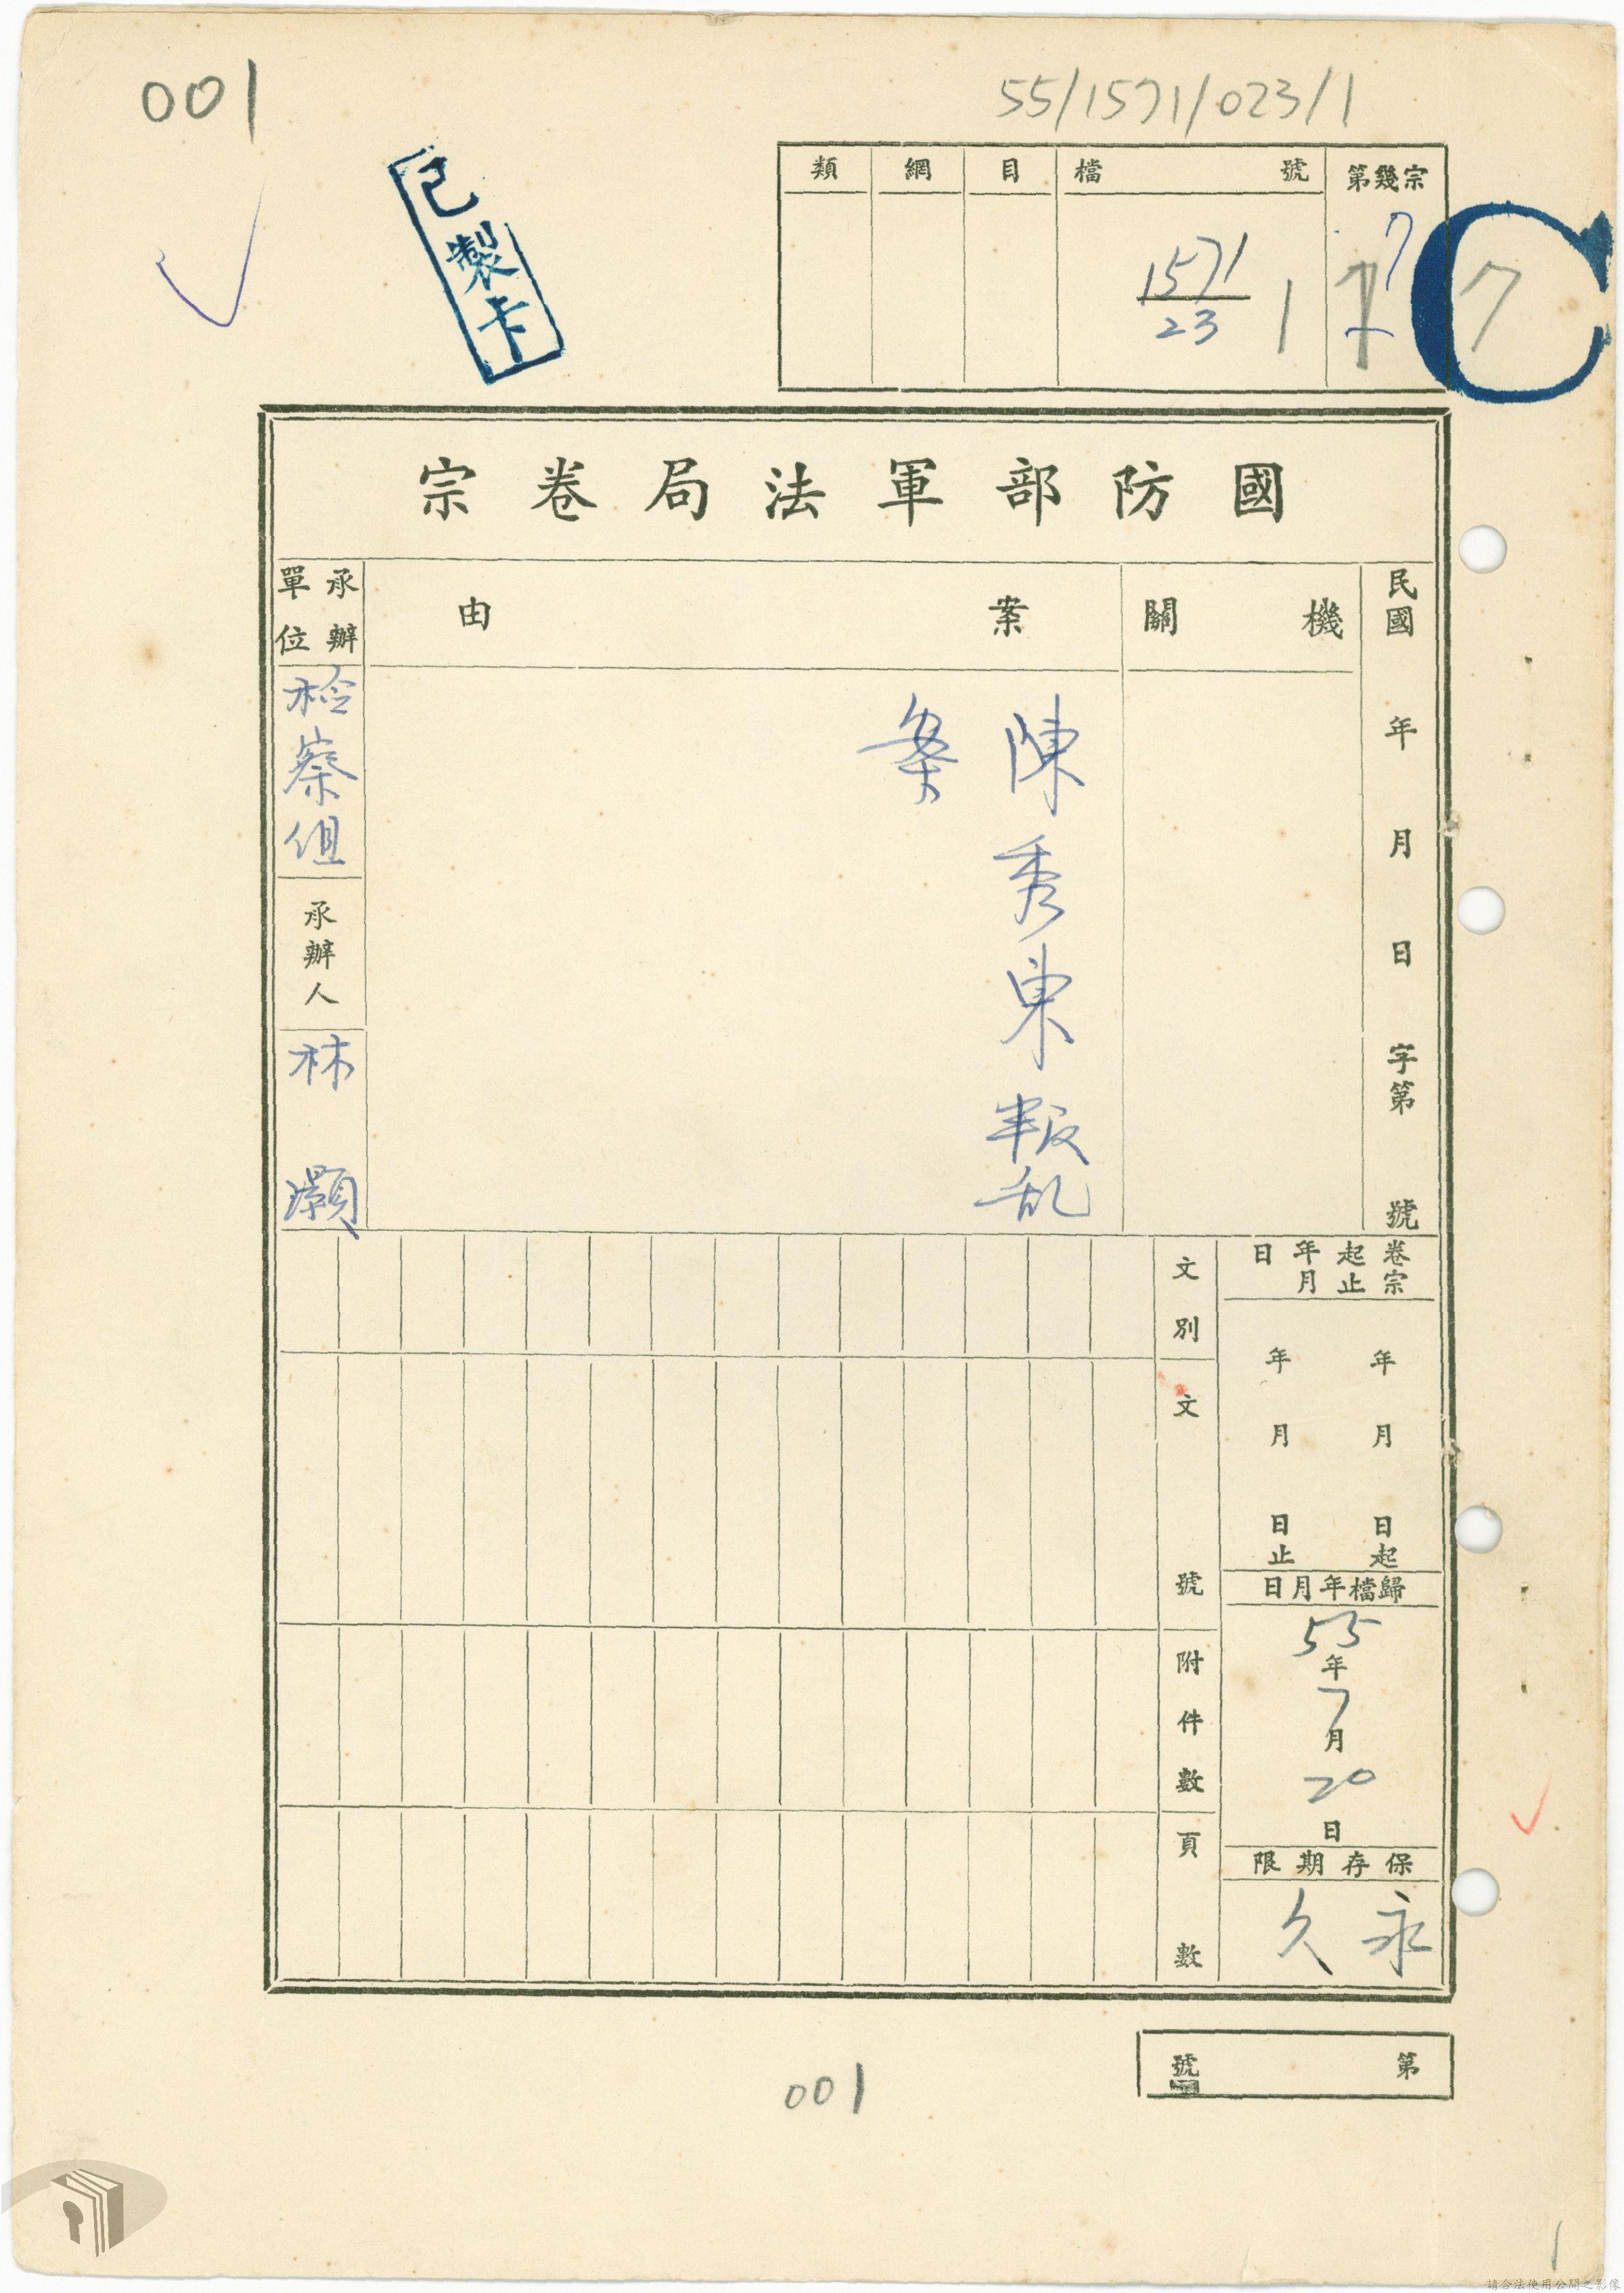 001
55/1571/023/1
已製卡
類 網 目 檔號 第幾宗
1571
23
1
7
C
7
國防部軍法局卷宗
民國 年 月 日 字第 號
機關
案由
陳秀東叛乱
案
承辦單位
檢察组
承辦人
林灝
卷宗起止年月日
年 月 日起
年 月 日止
歸檔年月日
55年7月20日
保存期限
永久
文別
文號
附件數
頁數
第 號
001
1
請合法使用公開之影像